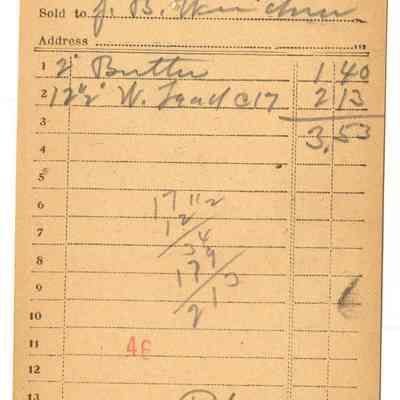 Sold to J. B.
Address
1 2# Butter 1 40
2 12½# W. Lead @17 2 13
3 3.53
4
5
6 17 12
7 12
8 34
9 17
10 213
11 46
12
13